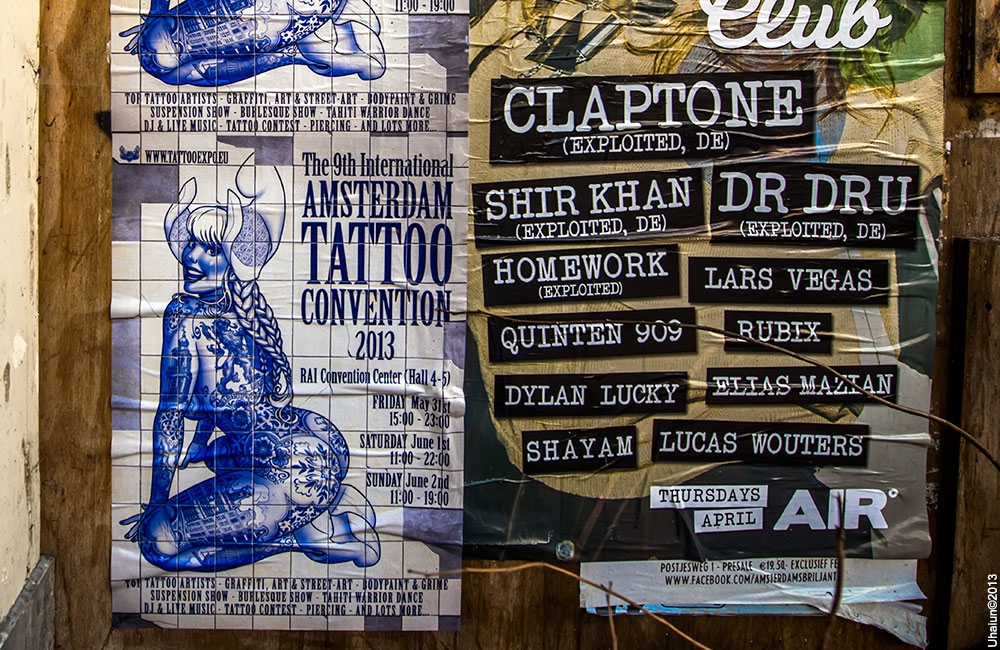 11:00 - 19:00
TOP TATTOO ARTISTS - GRAFFITI, ART & STREET-ART - BODYPAINT & GRIME
SUSPENSION SHOW - BURLESQUE SHOW - TAHITI WARRIOR DANCE
DJ & LIVE MUSIC - TATTOO CONTEST - PIERCING - AND LOTS MORE...
WWW.TATTOOEXPO.EU
The 9th International
AMSTERDAM
TATTOO
CONVENTION
2013
RAI Convention Center (Hall 4-5)
FRIDAY May 31st
15:00 - 23:00
SATURDAY June 1st
11:00 - 22:00
SUNDAY June 2nd
11:00 - 19:00
TOP TATTOO ARTISTS - GRAFFITI, ART & STREET-ART - BODYPAINT & GRIME
SUSPENSION SHOW - BURLESQUE SHOW - TAHITI WARRIOR DANCE
DJ & LIVE MUSIC - TATTOO CONTEST - PIERCING - AND LOTS MORE...
Club
CLAPTONE
(EXPLOITED, DE)
SHIR KHAN
(EXPLOITED, DE)
DR DRU
(EXPLOITED, DE)
HOMEWORK
(EXPLOITED)
LARS VEGAS
QUINTEN 909
RUBIX
DYLAN LUCKY
ELIAS MAZIAN
SHAYAM
LUCAS WOUTERS
THURSDAYS
APRIL
AIR°
POSTJESWEG 1 - PRESALE €19,50- EXCLUSIEF FE
WWW.FACEBOOK.COM/AMSTERDAMSBRILJANT
Uhaiun©2013